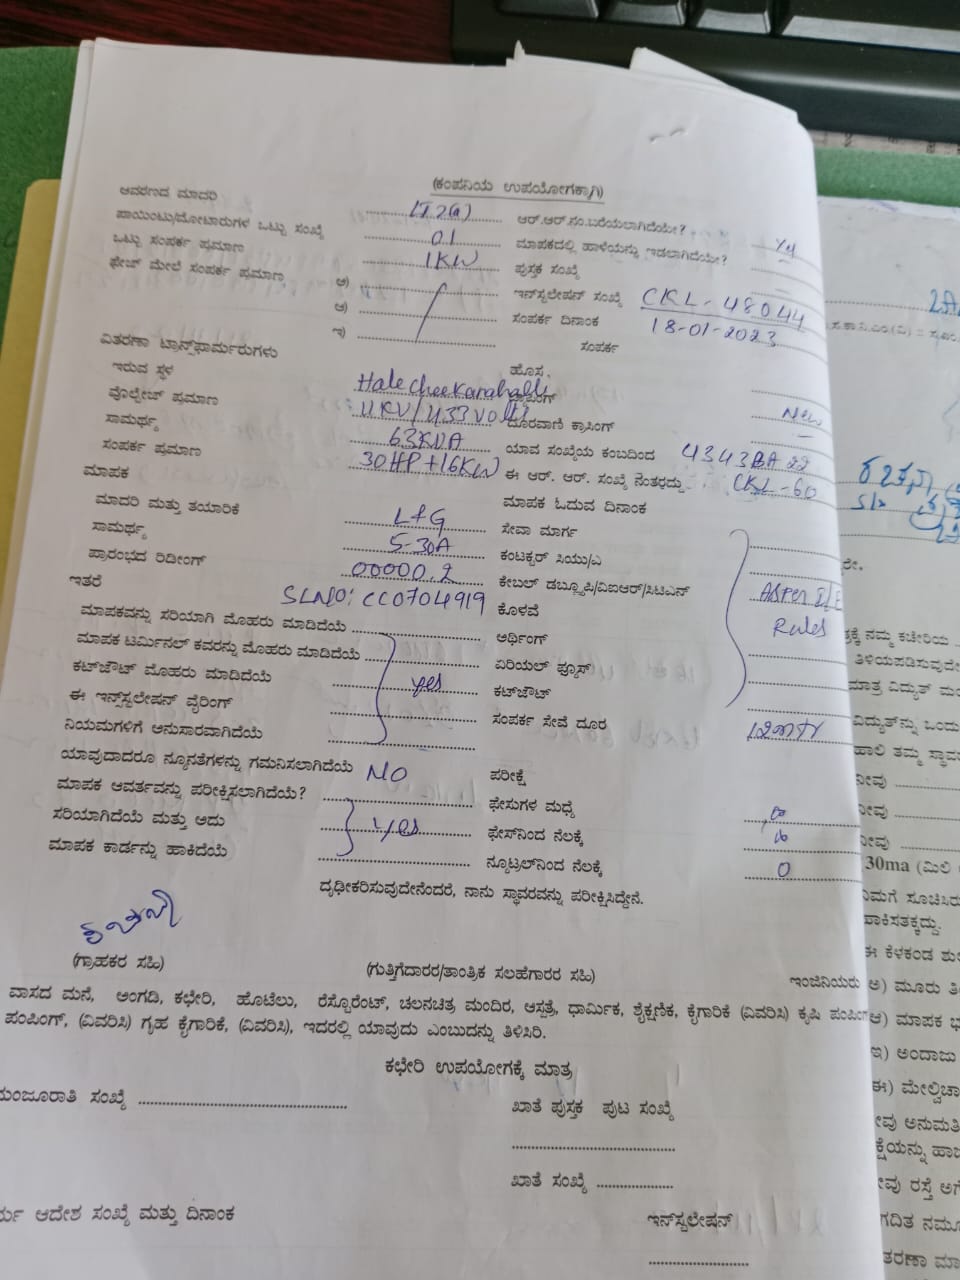 (ಕಂಪನಿಯ ಉಪಯೋಗಕ್ಕಾಗಿ)
ಆವರಣದ ಮಾದರಿ LT2(a) ಆರ್.ಆರ್.ನಂ.ಬರೆಯಲಾಗಿದೆಯೇ?
ಪಾಯಿಂಟು/ಮೋಟಾರುಗಳ ಒಟ್ಟು ಸಂಖ್ಯೆ 01 ಮಾಪಕದಲ್ಲಿ ಹಾಳೆಯನ್ನು ಇಡಲಾಗಿದೆಯೇ?
ಒಟ್ಟು ಸಂಪರ್ಕ ಪ್ರಮಾಣ 1KW ಪುಸ್ತಕ ಸಂಖ್ಯೆ
ಫೇಜ್ ಮೇಲೆ ಸಂಪರ್ಕ ಪ್ರಮಾಣ ಅ) ಇನ್‌ಸ್ಟಲೇಷನ್ ಸಂಖ್ಯೆ CKL-48044
ಆ) ಸಂಪರ್ಕ ದಿನಾಂಕ 18-01-2023
ಇ) ಸಂಪರ್ಕ
ವಿತರಣಾ ಟ್ರಾನ್ಸ್‌ಫಾರ್ಮರುಗಳು ಹೊಸ.
ಇರುವ ಸ್ಥಳ Halecheekarahalli New
ವೋಲ್ಟೇಜ್ ಪ್ರಮಾಣ 11KV/433 Volts ದೂರವಾಣಿ ಕ್ರಾಸಿಂಗ್
ಸಾಮರ್ಥ್ಯ 63KVA ಯಾವ ಸಂಖ್ಯೆಯ ಕಂಬದಿಂದ
ಸಂಪರ್ಕ ಪ್ರಮಾಣ 30HP+16KW ಈ ಆರ್. ಆರ್. ಸಂಖ್ಯೆ ನಂತರದ್ದು CKL-60
ಮಾಪಕ ಮಾಪಕ ಓದುವ ದಿನಾಂಕ
ಮಾದರಿ ಮತ್ತು ತಯಾರಿಕೆ L&G ಸೇವಾ ಮಾರ್ಗ
ಸಾಮರ್ಥ್ಯ 5-30A ಕಂಟಕ್ಟರ್ ಸಿಯು/ಎ
ಪ್ರಾರಂಭದ ರಿಡೀಂಗ್ 00000.2 ಕೇಬಲ್ ಡಬ್ಲ್ಯೂಪಿ/ವಿಐಆರ್/ಸಿಟಿಎನ್ As per I/E
ಇತರೆ SLNO: CC0704919 ಕೊಳವೆ Rules
ಮಾಪಕವನ್ನು ಸರಿಯಾಗಿ ಮೊಹರು ಮಾಡಿದೆಯೆ ಅರ್ಥಿಂಗ್
ಮಾಪಕ ಟರ್ಮಿನಲ್ ಕವರನ್ನು ಮೊಹರು ಮಾಡಿದೆಯೆ ಏರಿಯಲ್ ಫ್ಯೂಸ್
ಕಟ್‌ಔಟ್ ಮೊಹರು ಮಾಡಿದೆಯೆ yes ಕಟ್‌ಔಟ್
ಈ ಇನ್ಸ್‌ಸ್ಟಲೇಷನ್ ವೈರಿಂಗ್ ಸಂಪರ್ಕ ಸೇವೆ ದೂರ
ನಿಯಮಗಳಿಗೆ ಅನುಸಾರವಾಗಿದೆಯೆ
ಯಾವುದಾದರೂ ನ್ಯೂನತೆಗಳನ್ನು ಗಮನಿಸಲಾಗಿದೆಯೆ NO ಪರೀಕ್ಷೆ
ಮಾಪಕ ಆವರ್ತವನ್ನು ಪರೀಕ್ಷಿಸಲಾಗಿದೆಯೆ? ಫೇಸುಗಳ ಮಧ್ಯೆ
ಸರಿಯಾಗಿದೆಯೆ ಮತ್ತು ಅದು yes ಫೇಸ್‌ನಿಂದ ನೆಲಕ್ಕೆ
ಮಾಪಕ ಕಾರ್ಡನ್ನು ಹಾಕಿದೆಯೆ ನ್ಯೂಟ್ರಲ್‌ನಿಂದ ನೆಲಕ್ಕೆ 0
ದೃಢೀಕರಿಸುವುದೇನೆಂದರೆ, ನಾನು ಸ್ಥಾವರವನ್ನು ಪರೀಕ್ಷಿಸಿದ್ದೇನೆ.
(ಗ್ರಾಹಕರ ಸಹಿ) (ಗುತ್ತಿಗೆದಾರರ/ತಾಂತ್ರಿಕ ಸಲಹೆಗಾರರ ಸಹಿ) ಇಂಜಿನಿಯರು
ವಾಸದ ಮನೆ, ಅಂಗಡಿ, ಕಛೇರಿ, ಹೊಟೇಲು, ರೆಸ್ಟೊರೆಂಟ್, ಚಲನಚಿತ್ರ ಮಂದಿರ, ಆಸ್ಪತ್ರೆ, ಧಾರ್ಮಿಕ, ಶೈಕ್ಷಣಿಕ, ಕೈಗಾರಿಕೆ (ವಿವರಿಸಿ) ಕೃಷಿ ಪಂಪಿಂಗ್
ಪಂಪಿಂಗ್, (ವಿವರಿಸಿ) ಗೃಹ ಕೈಗಾರಿಕೆ, (ವಿವರಿಸಿ), ಇದರಲ್ಲಿ ಯಾವುದು ಎಂಬುದನ್ನು ತಿಳಿಸಿರಿ.
ಕಛೇರಿ ಉಪಯೋಗಕ್ಕೆ ಮಾತ್ರ
ಮಂಜೂರಾತಿ ಸಂಖ್ಯೆ ಖಾತೆ ಪುಸ್ತಕ ಪುಟ ಸಂಖ್ಯೆ
ಖಾತೆ ಸಂಖ್ಯೆ
ಆದೇಶ ಸಂಖ್ಯೆ ಮತ್ತು ದಿನಾಂಕ ಇನ್‌ಸ್ಟಲೇಷನ್
30ma (ಮಿಲಿ
ಈ ಕೆಳಕಂಡ
ಅ) ಮೂರು
ಆ) ಮಾಪಕ
ಇ) ಅಂದಾಜು